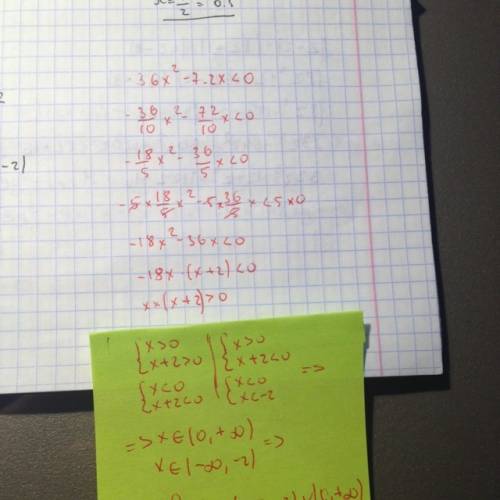 = 0.1
2
-2)
-36x²-7.2x<0
-36/10 x² - 72/10 x<0
-18/5 x² - 36/5 x<0
-5×18/5 x² -5×36/5 x <5×0
-18x²-36x<0
-18x·(x+2)<0
x×(x+2)>0
{x>0 {x>0
{x+2>0 {x+2<0
{x<0 {x<0 =>
{x+2<0 {x<-2
=>x∈(0,+∞) =>
x∈(-∞,-2)
(0,+∞)